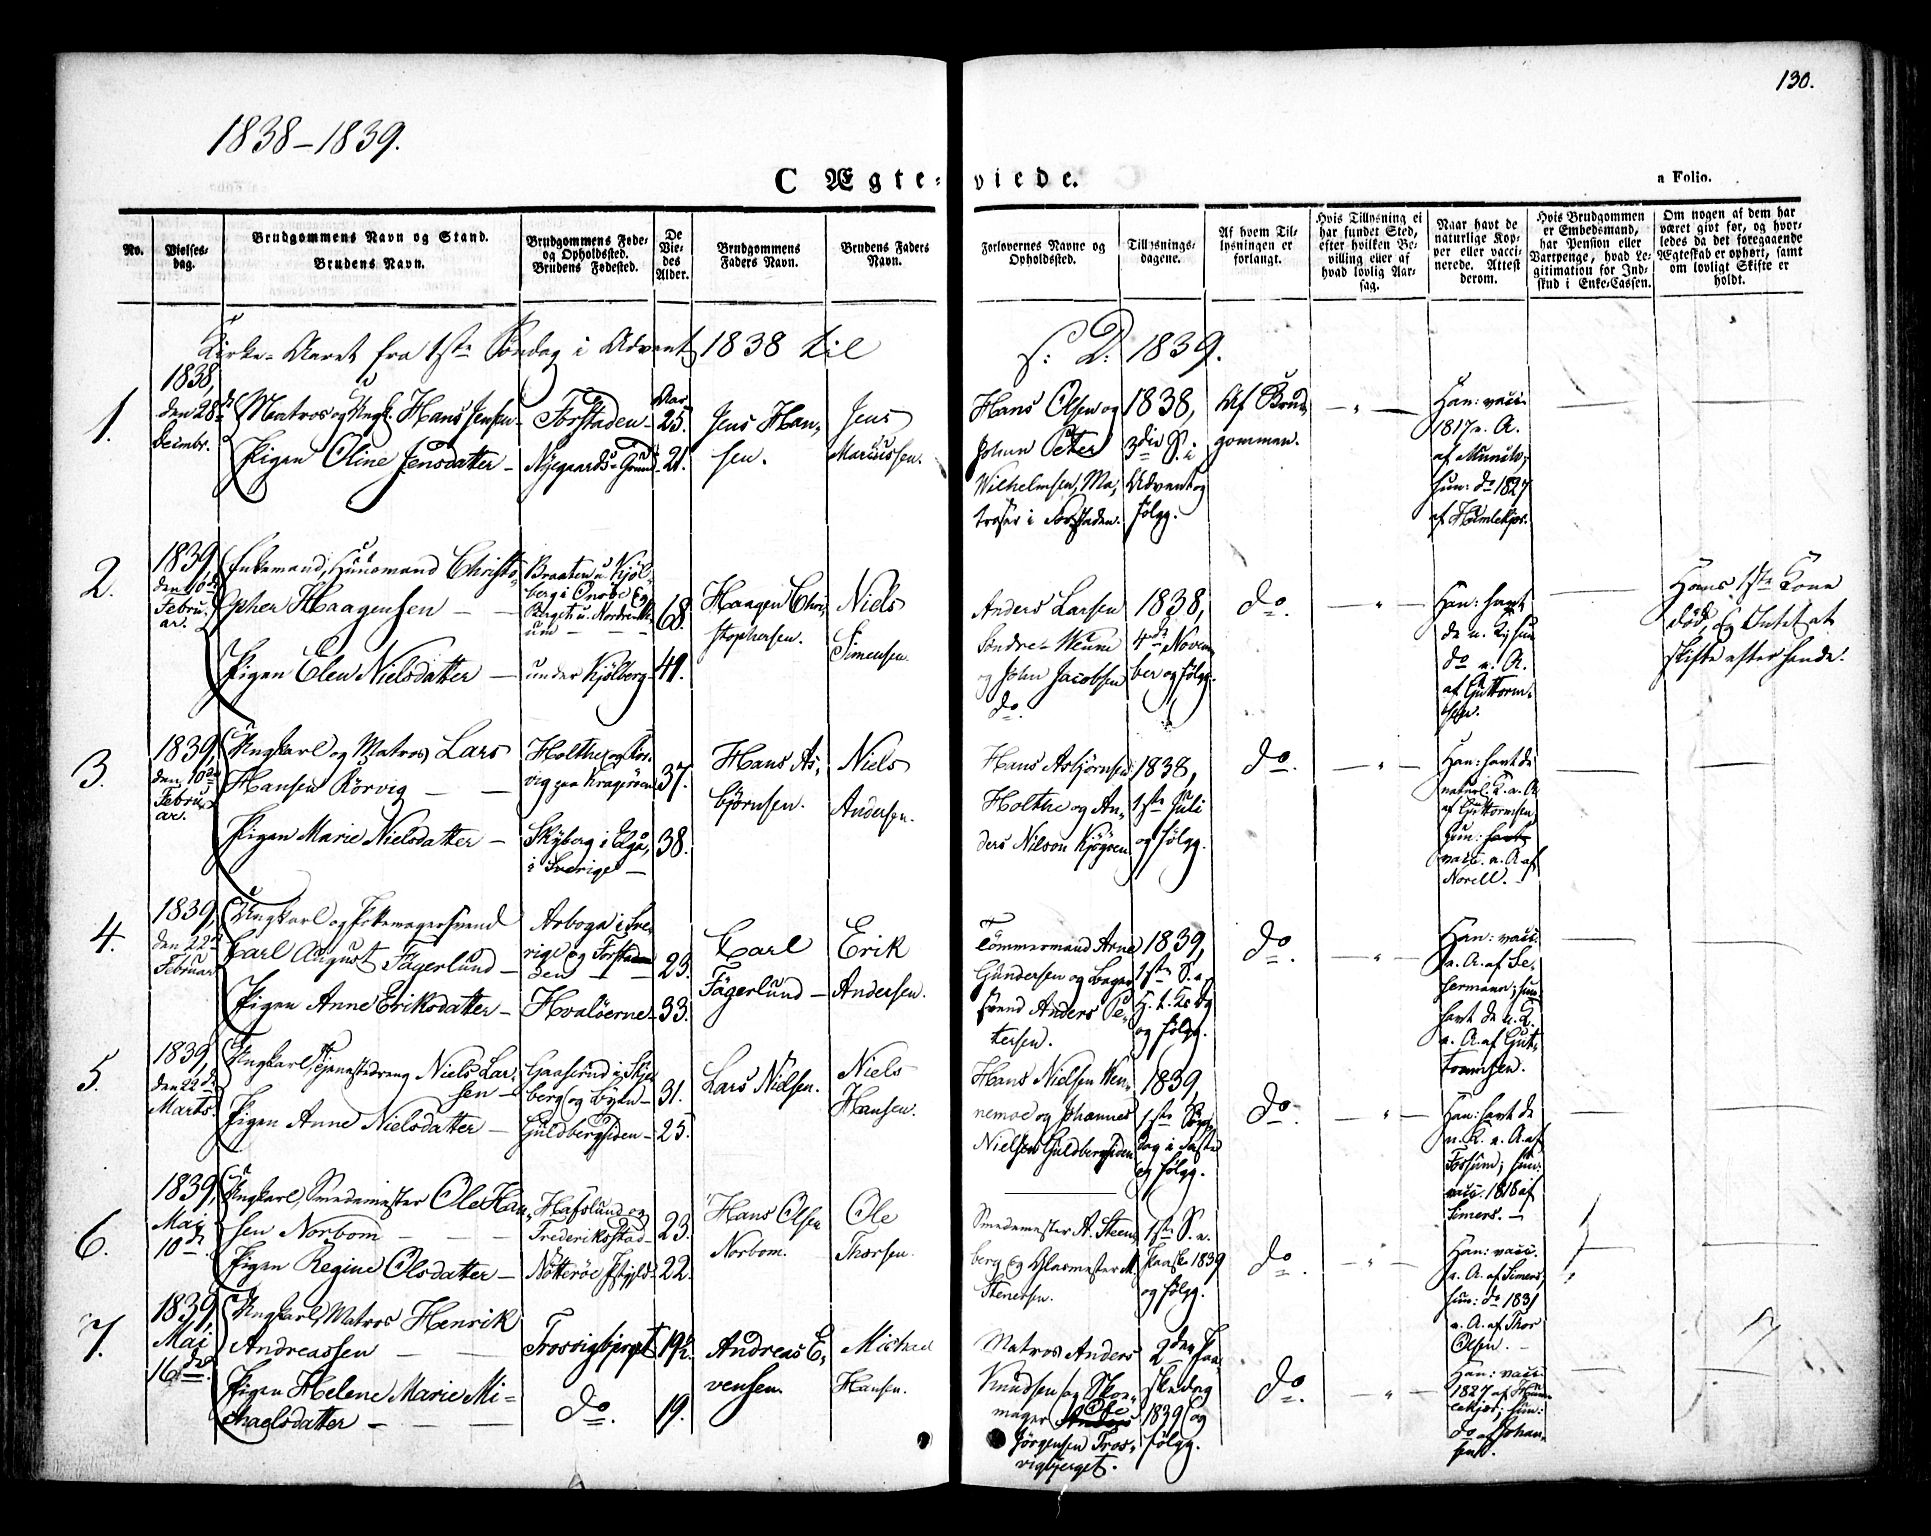 130.
1838–1839.
C Ægte-viede.
a Folio.
No.
Vielses-dag.
Brudgommens Navn og Stand.
Brudens Navn.
Brudgommens Føde-
og Opholdssted.
Brudens Fødested.
De
Vie-
des
Alder.
Brudgommens
Faders Navn.
Brudens Faders
Navn.
Forlovernes Navne og
Opholdssted.
Tillysnings-
dagene.
Af hvem Til-
lysningen er
forlangt.
Hvis Tillysning ei
har fundet Sted,
efter hvilken Be-
villing eller af
hvad lovlig Aar-
sag.
Naar havt de
naturlige Kop-
per eller vacci-
nerede. Attest
derom.
Hvis Brudgommen
er Embedsmand,
har Pension eller
Vartpenge, hvad Le-
gitimation for Ind-
skud i Enke-Cassen.
Om nogen af dem har
været gift før, og hvor-
ledes da det foregaaende
Ægteskab er ophørt, samt
om lovligt Skifte er
holdt.
Kirke-Aaret fra 1ste Søndag i Advent 1838 til
s: D: 1839.
1.
1838,
den 28de
Decmbr.
Matros og Ungk. Hans Jensen
Pigen Oline Jensdatter
Forstaden
Nygaards Grund
Aar
25.
21.
Jens Han-
sen.
Jens
Marcussen.
Hans Olsen og
Johan Peter
Wilhelmsen, Ma-
troser i Forstaden.
1838,
3die S. i
Advent og
følgg.
Af Brud-
gommen.
Han: vacc.
1817 e. A.
af Munils;
hun: do 1827
af Humlekjær.
2.
1839
den 10de
Febru-
ar.
Enkemand, Huusmand Christo-
pher Haagensen
Pigen Elen Nielsdatter
Braaten u. Kjøl-
berg i Onsøe og
under Kjølberg
68.
41.
Haagen Chri-
stophersen.
Niels
Simensen.
Anders Larsen
Søndre
og John Jacobsen
do.
1838,
4de Novem-
ber og følgg.
do.
Han: havt
de n. K; hun
do e. A.
af Guttorm-
sen.
Hans 1ste Kone
død, og Intet at
skifte efter hende.
3.
1839,
den 10de
Febru-
ar.
Ungkarl og Matros Lars
Hansen Rørvig
Pigen Marie Nielsdatter
Holthe og Rør-
vig paa Kragerøen
Skÿberg i
i Sverige
37.
38.
Hans As-
bjørnsen.
Niels
Andersen.
Hans Asbjørnsen
Holthe og An-
ders Nilson Kjøgsen
1838,
1ste Juli
og følgg.
do.
Han: havt de
naturl. K. e. A.
af Guttormsen,
hun: havt
vacc. e. A. af
Norell.
4.
1839,
den 22de
Februar
Ungkarl og Feldbersvend
Carl August Fägerlund
Pigen Anne Eriksdatter
Arboga i Sve-
rige og Forsta-
den
Hvaløerne
23.
33.
Carl
Fägerlund
Erik
Andersen.
Tømmermand Arne
Gundersen og Bager-
svend Anders Pe-
tersen.
1839,
1ste S. e.
H. t. K. Dg
og følgg.
do.
Han: vacc.
e. A. af Se-
hermann; hun
havt de n. K.
e. A. af Gut-
tormsen.
5.
1839,
den 22de
Marts.
Ungkarl, Tjenestedreng Niels Lar-
sen
Pigen Anne Nielsdatter
Gaaserud i Skje-
berg og Byen
Guldbergsiden
31.
25.
Lars Nielsen.
Niels
Hansen.
Hans Nielsen Ven-
nemoe og Johannes
Nielsen Guldbergsiden
1839,
1ste Søn-
dag i Faste
og følgg.
do.
Han: havt de
n. K. e. A. af
Fossum; hun:
vacc. 1818 af
Simers.
6.
1839,
Maj
10de.
Ungkarl, Smedemester Ole Han-
sen Norbom
Pigen Regine Olsdatter
Hafslund og
Frederiksstad
Nøtterøe Pstgjld
23.
22.
Hans Olsen
Norbom.
Ole
Thorsen.
Smedemester A. Steen-
berg og Glasmester M.
Stenersen.
1ste S. e.
Paaske 1839
og følgg.
do.
Han: vacc.
e. A. af Simers;
hun: do 1831
e. A. af Thor
Olsen.
7.
1839,
Maj
16de.
Ungkarl, Matros Henrik
Andreassen
Pigen Helene Marie Mi-
chaelsdatter
Trosvigbjerget
do.
19½.
19.
Andreas E-
vensen.
Michael
Hansen.
Matros Anders
Knudsen og Skoe-
mager Anders Ole
Jørgensen Tros-
vigbjerget.
2den Paa-
skedag
1839 og
følgg.
do.
Han: vacc.
1827 af Hum-
lekjær; hun:
do af Johan-
sen.